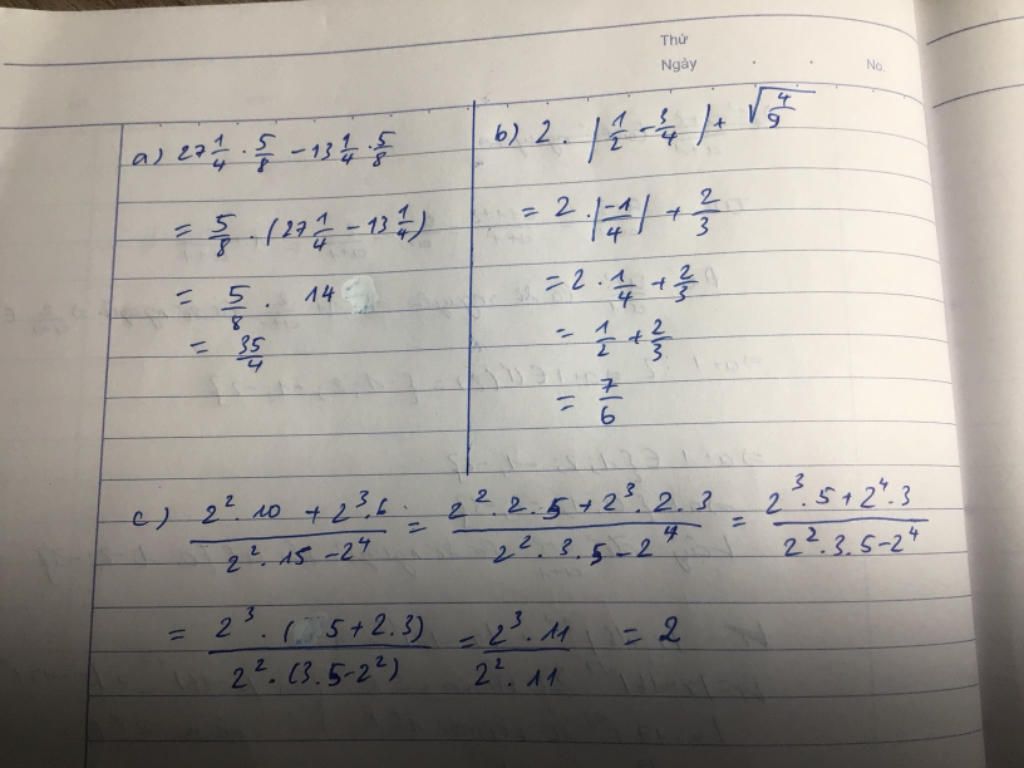 Thứ
Ngày . . No.
a) 27 1/4 . 5/8 - 13 1/4 . 5/8
= 5/8 . (27 1/4 - 13 1/4)
= 5/8 . 14
= 35/4
b) 2 . |1/2 - 3/4| + √(4/9)
= 2 . |-1/4| + 2/3
= 2 . 1/4 + 2/3
= 1/2 + 2/3
= 7/6
c) (2² . 10 + 2³ . 6)/(2² . 15 - 2⁴) = (2² . 2 . 5 + 2³ . 2 . 3)/(2² . 3 . 5 - 2⁴) = (2³ . 5 + 2⁴ . 3)/(2² . 3 . 5 - 2⁴)
= (2³ . (5 + 2 . 3))/(2² . (3 . 5 - 2²)) = (2³ . 11)/(2² . 11) = 2